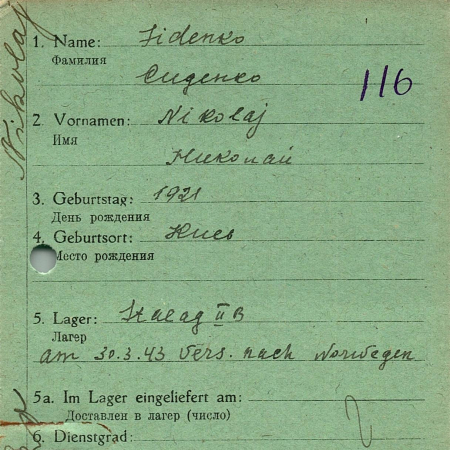 Nikolaj
1. Name: Sidenko
Фамилия
Сиденко
116
2. Vornamen: Nikolaj
Имя
Николай
3. Geburtstag: 1921
День рождения
4. Geburtsort: Киев
Место рождения
5. Lager: Stalag II B
Лагер
am 30.3.43 Vers. nach Norwegen
5a. Im Lager eingeliefert am:
Доставлен в лагер (число)
6. Dienstgrad: